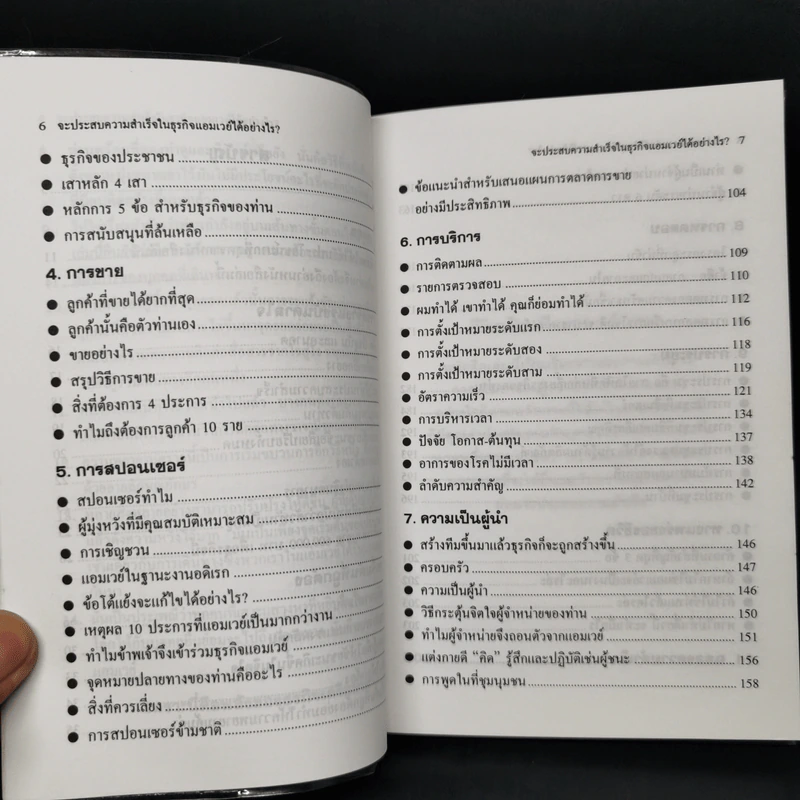 6 จะประสบความสำเร็จในธุรกิจแอมเวย์ได้อย่างไร?
● ธุรกิจของประชาชน
● เสาหลัก 4 เสา
● หลักการ 5 ข้อ สำหรับธุรกิจของท่าน
● การสนับสนุนที่ล้นเหลือ
4. การขาย
● ลูกค้าที่ขายได้ยากที่สุด
● ลูกค้านั้นคือตัวท่านเอง
● ขายอย่างไร
● สรุปวิธีการขาย
● สิ่งที่ต้องการ 4 ประการ
● ทำไมถึงต้องการลูกค้า 10 ราย
5. การสปอนเซอร์
● สปอนเซอร์ทำไม
● ผู้มุ่งหวังที่มีคุณสมบัติเหมาะสม
● การเชิญชวน
● แอมเวย์ในฐานะงานอดิเรก
● ข้อโต้แย้งจะแก้ไขได้อย่างไร?
● เหตุผล 10 ประการที่แอมเวย์เป็นมากกว่างาน
● ทำไมข้าพเจ้าจึงเข้าร่วมธุรกิจแอมเวย์
● จุดหมายปลายทางของท่านคืออะไร
● สิ่งที่ควรเลี่ยง
● การสปอนเซอร์ข้ามชาติ
จะประสบความสำเร็จในธุรกิจแอมเวย์ได้อย่างไร? 7
● ข้อแนะนำสำหรับเสนอแผนการตลาดการขาย
อย่างมีประสิทธิภาพ 104
6. การบริการ
● การติดตามผล 109
● รายการตรวจสอบ 110
● ผมทำได้ เขาทำได้ คุณก็ย่อมทำได้ 112
● การตั้งเป้าหมายระดับแรก 116
● การตั้งเป้าหมายระดับสอง 118
● การตั้งเป้าหมายระดับสาม 119
● อัตราความเร็ว 121
● การบริหารเวลา 134
● ปัจจัย โอกาส-ต้นทุน 137
● อาการของโรคไม่มีเวลา 138
● ลำดับความสำคัญ 142
7. ความเป็นผู้นำ
● สร้างทีมขึ้นมาแล้วธุรกิจก็จะถูกสร้างขึ้น 146
● ครอบครัว 147
● ความเป็นผู้นำ 146
● วิธีกระตุ้นจิตใจผู้จำหน่ายของท่าน 150
● ทำไมผู้จำหน่ายจึงถอนตัวจากแอมเวย์ 151
● แต่งกายดี "คิด" รู้สึกและปฏิบัติเช่นผู้ชนะ 156
● การพูดในที่ชุมนุมชน 158